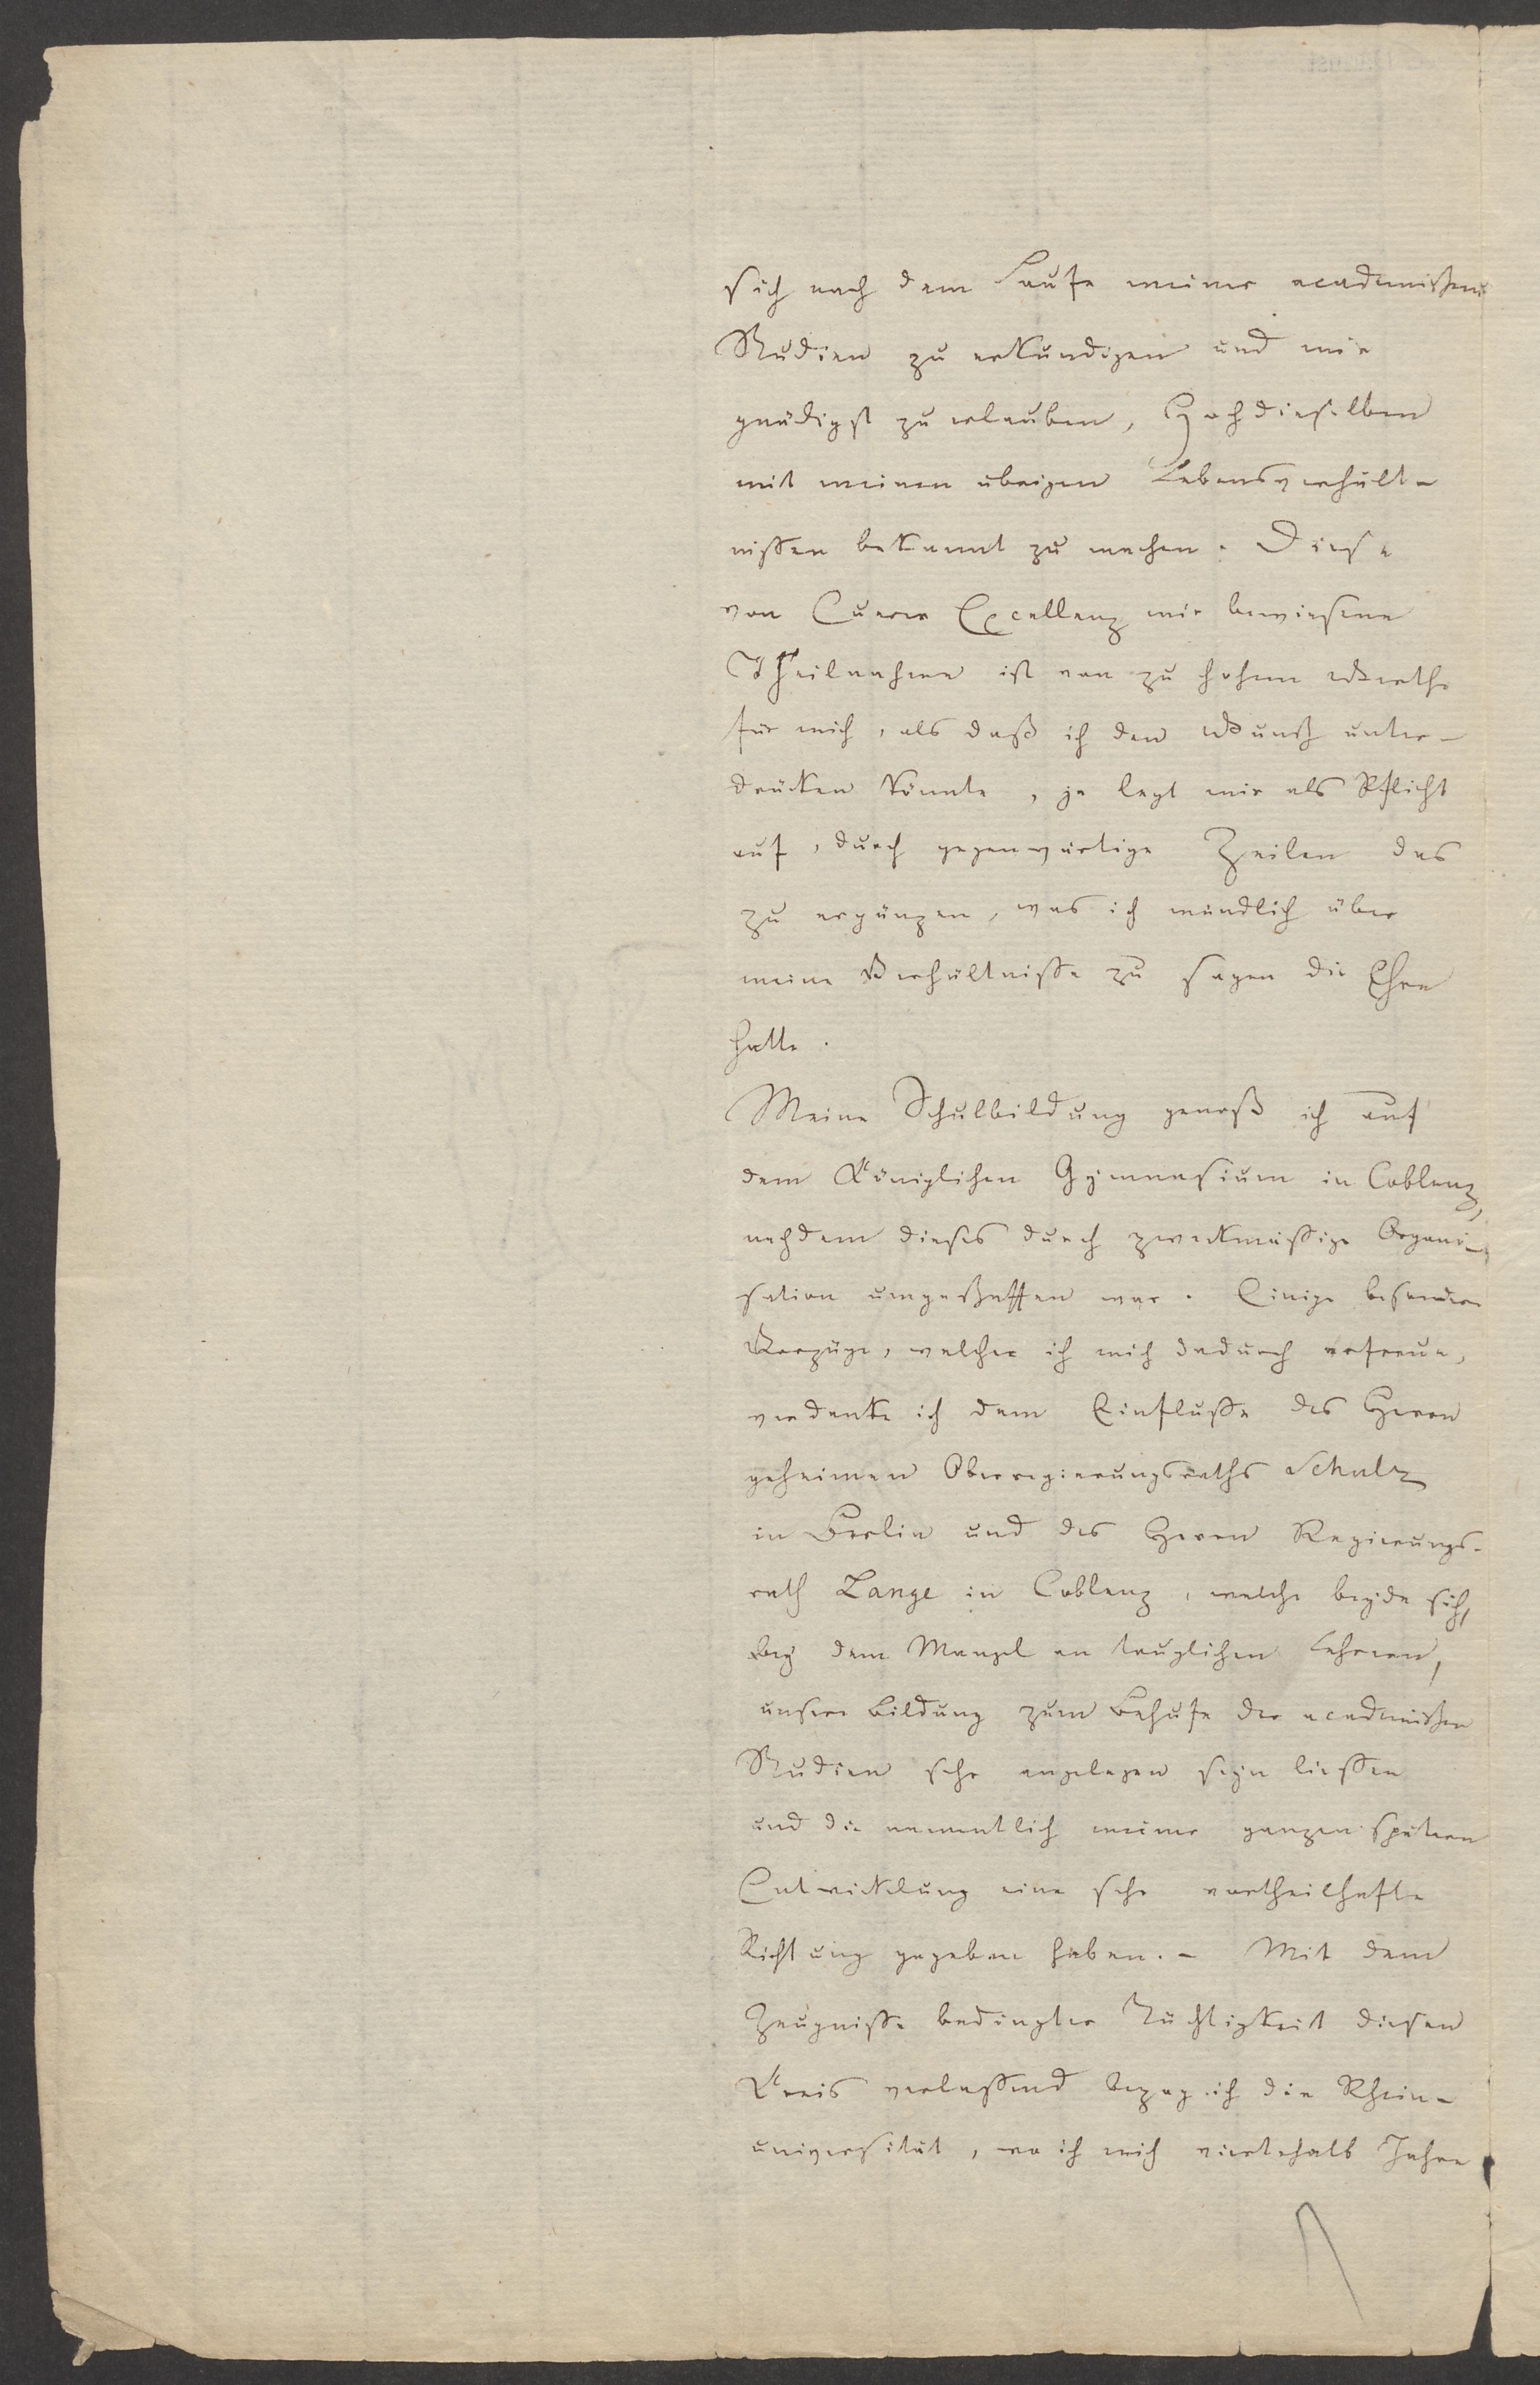 sich nach dem Laufe meiner academischen
Studien zu erkundigen und mir
gnädigst zu erlauben, Hochdieselben
mit meinen übrigen Lebensverhält-
nissen bekannt zu machen. Diese
von Euerer Excellenz mir bewiesene
Theilnahme ist von zu hohem Werthe
für mich, als daß ich den Wunsch unter-
drücken könnte, ja legt mir als Pflicht
auf, durch gegenwärtige Zeilen das
zu ergänzen, was ich mündlich über
meine Verhältnisse zu sagen die Ehre
hatte.
Meine Schulbildung genoß ich auf
dem Königlichen Gymnasium in Coblenz,
nachdem dieses durch zweckmässige Organi-
sation umgeschaffen war. Einige besondere
Vorzüge, welcher ich mich dadurch erfreue,
verdanke ich dem Einflusse des Herrn
geheimen Oberregierungsraths Schulz
in Berlin und des Herrn Regierungs-
rath Lange in Coblenz, welche beyde sich,
bey dem Mangel an tauglichen Lehrern,
unsere Bildung zum Behufe der academischen
Studien sehr angelegen seyn liessen
und die namentlich meiner ganzen spätern
Entwicklung eine sehr vortheilhafte
Richtung gegeben haben. - Mit dem
Zeugnisse bedingter Tüchtigkeit diesen
Kreis verlassend bezog ich die Rhein-
universität, wo ich mich viertehalb Jahre